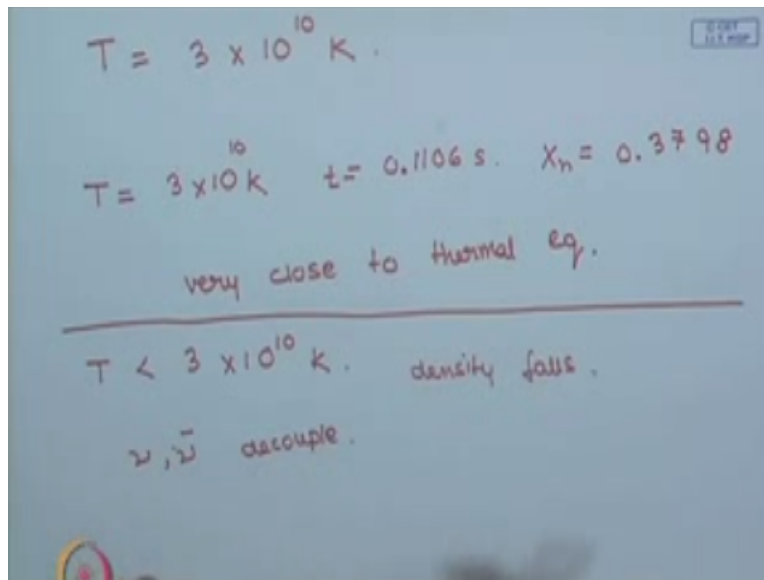 T = 3 x 10¹⁰ K.
T = 3 x 10¹⁰ K t = 0.1106 s. Xn = 0.3798
very close to thermal eq.
T < 3 x 10¹⁰ K. density falls.
ν, ν̄ decouple.